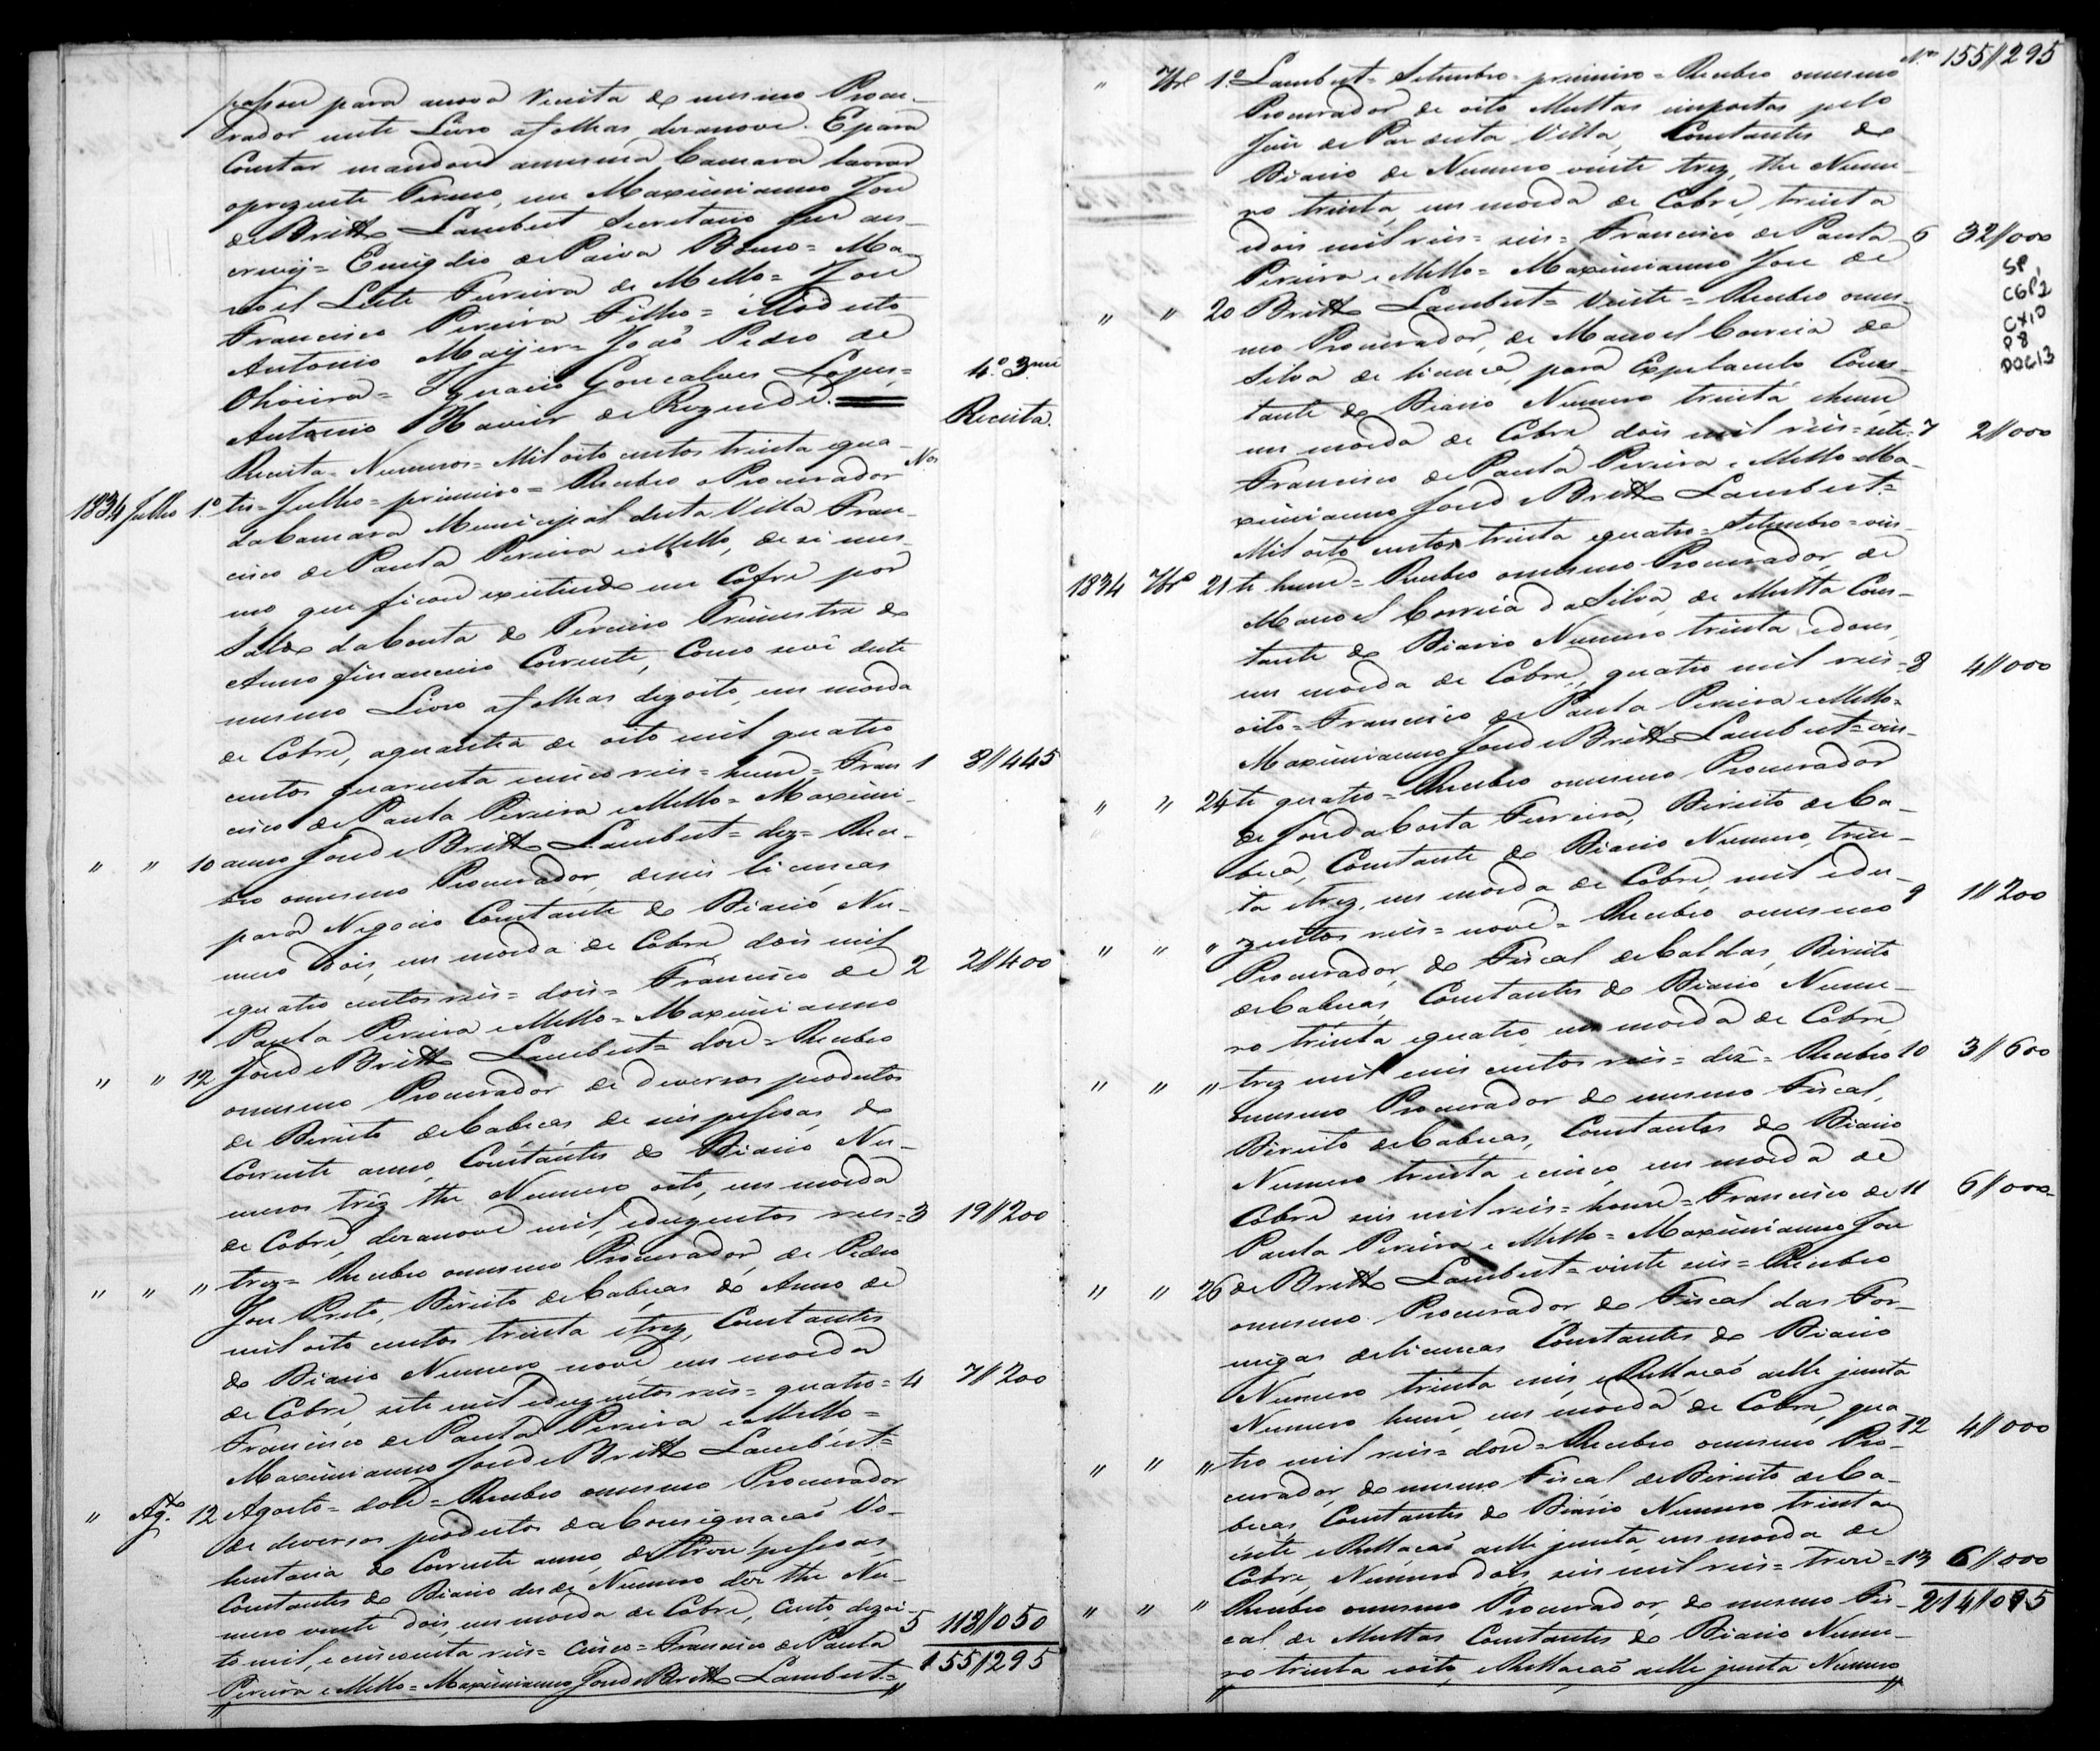 passou para anova Receita do mesmo Procu-
rador neste Livro afolhas dezanove. Epara
Constar mandou amesma Camara lavrar
oprezente Termo, eu Maximianno Joze
de Britto Lambert Secretario que aes-
crevij = Emigdio de Paiva Bueno = Ma-
noel Leite Ferreira de Mello = Joze
Francisco Pereira Filho = Modesto
Antonio Maijer = João Pedro de
Oliveira = Ignacio Goncalves Lopes =
Antonio Xavier de Rezende.
4.º 3.me
Receita.
Receita = Numeros = Mil oito centos trinta equa- Nos
1834 Julho 1.º tro = Julho = primeiro = Recebeo o Procurador
da Camara Municipal desta Villa Fran-
cisco de Paula Pereira eMello, de si mes-
mo que ficou existindo em Cofre por
Saldo da Conta do Terceiro Trimestre do
Anno financeiro Corrente, Como sevê deste
mesmo Livro afolhas dezoito, em moeda
de Cobre, aquantia de oito mil quatro
centos quarenta ecinco reis = hum = Fran 1 8//445
cisco de Paula Pereira eMello = Maximi-
" " 10 anno Joze de Britto Lambert = dez = Rece-
beo omesmo Procurador, deseis licencas
para Negocio Constante do Diario Nu-
mero dois, em moeda de Cobre dois mil
equatro centos reis = dois = Francisco de 2 2//400
Paula Pereira eMello = Maximianno
" " 12 Joze de Britto Lambert = doze = Recebeo
omesmo Procurador de diversos produtos
de Direito deCabecas de seis pessoas, do
Corrente anno, Constantes do Diario Nu-
meros trez the Numero oito, em moeda
de Cobre, dezanove mil, eduzentos reis = 3 19//200
" " " trez = Recebeo omesmo Procurador, de Pedro
Joze Preto, Direito deCabecas do Anno de
mil oito centos trinta etrez, Constantes
do Diario Numero nove em moeda
de Cobre, sete mil eduzentos reis = quatro = 4 7//200
Francisco de Paula Pereira eMello =
Maximianno Joze de Britto Lambert =
" Ag.to 12 Agosto = doze = Recebeo omesmo Procurador
de diversos produtos daConsignacaõ Vo-
luntaria do Corrente anno, de treze pessoas,
Constantes do Diario desde Numero dez the Nu-
mero vinte dois, em moeda de Cobre, Cento, dezoi- 5 118//050
to mil, ecincoenta reis = Cinco = Francisco de Paula 155//295
Pereira eMello = Maximianno Joze de Britto Lambert =
N.º 155//295
" 7br.º 1.º Lambert = Setembro = primeiro = Recebeo omesmo
Procurador de oito Multas impostas pelo
Juiz de Paz desta Villa, Constantes do
Diario de Numero vinte trez, the Nume-
ro trinta, em moeda de Cobre, trinta
edois mil reis = seis = Francisco de Paula 6 32//000
Pereira eMello = Maximianno Joze de
SP,
CGP2
CX10
P8
DOC13
" " 20 Britto Lambert = Vinte = Recebeo omes-
mo Procurador, de Manoel Correia da
Silva de licenca, para Expetaculo Cons-
tante do Diario Numero trinta ehum,
em moeda de Cobre, dois mil reis = sete = 7 2//000
Francisco de Paula Pereira eMello = Ma-
ximianno Joze de Britto Lambert =
Mil oito centos trinta equatro = Setembro = vin-
1834 7br.º 21 te hum = Recebeo omesmo Procurador, de
Manoel Correia da Silva, de Multa Cons-
tante do Diario Numero trinta edous,
em moeda de Cobre, quatro mil reis = 8 4//000
oito = Francisco de Paula Pereira eMello =
Maximianno Joze de Britto Lambert = vin-
" " 24 te quatro = Recebeo omesmo Procurador
de Joze da Costa Ferreira, Direito deCa-
beca, Constante do Diario Numero, trin-
ta etrez, em moeda de Cobre, mil edu- 9 1//200
" " " zentos reis = nove = Recebeo omesmo
Procurador, do Fiscal deCaldas, Direito
deCabecas, Constantes do Diario Nume-
ro trinta equatro em moeda de Cobre,
trez mil seis centos reis = déz = Recebeo 10 3//600
" " " omesmo Procurador do mesmo Fiscal,
Direito deCabecas, Constantes do Diario
Numero trinta ecinco, em moeda de
Cobre seis mil reis = honze = Francisco de 11 6//000
Paula Pereira eMello = Maximianno Joze
" " 26 de Britto Lambert = vinte seis = Recebeo
omesmo Procurador, do Fiscal das For-
migas delicencas Constantes do Diario
Numero trinta eseis, eRellacaõ aelle junta
Numero hum, em moeda de Cobre, qua- 12 4//000
" " " tro mil reis = doze = Recebeo omesmo Pro-
curador, do mesmo Fiscal deDireito deCa-
becas, Constantes do Diario Numero trinta
esete, eRellacaõ aelle junta, em moeda de
Cobre, Numero dois, seis mil reis = treze = 13 6//000
" " " Recebeo omesmo Procurador, do mesmo Fis- 214//095
cal de Multas Constantes do Diario Nume-
ro trinta eoito, eRellacaõ aelle junta Numero